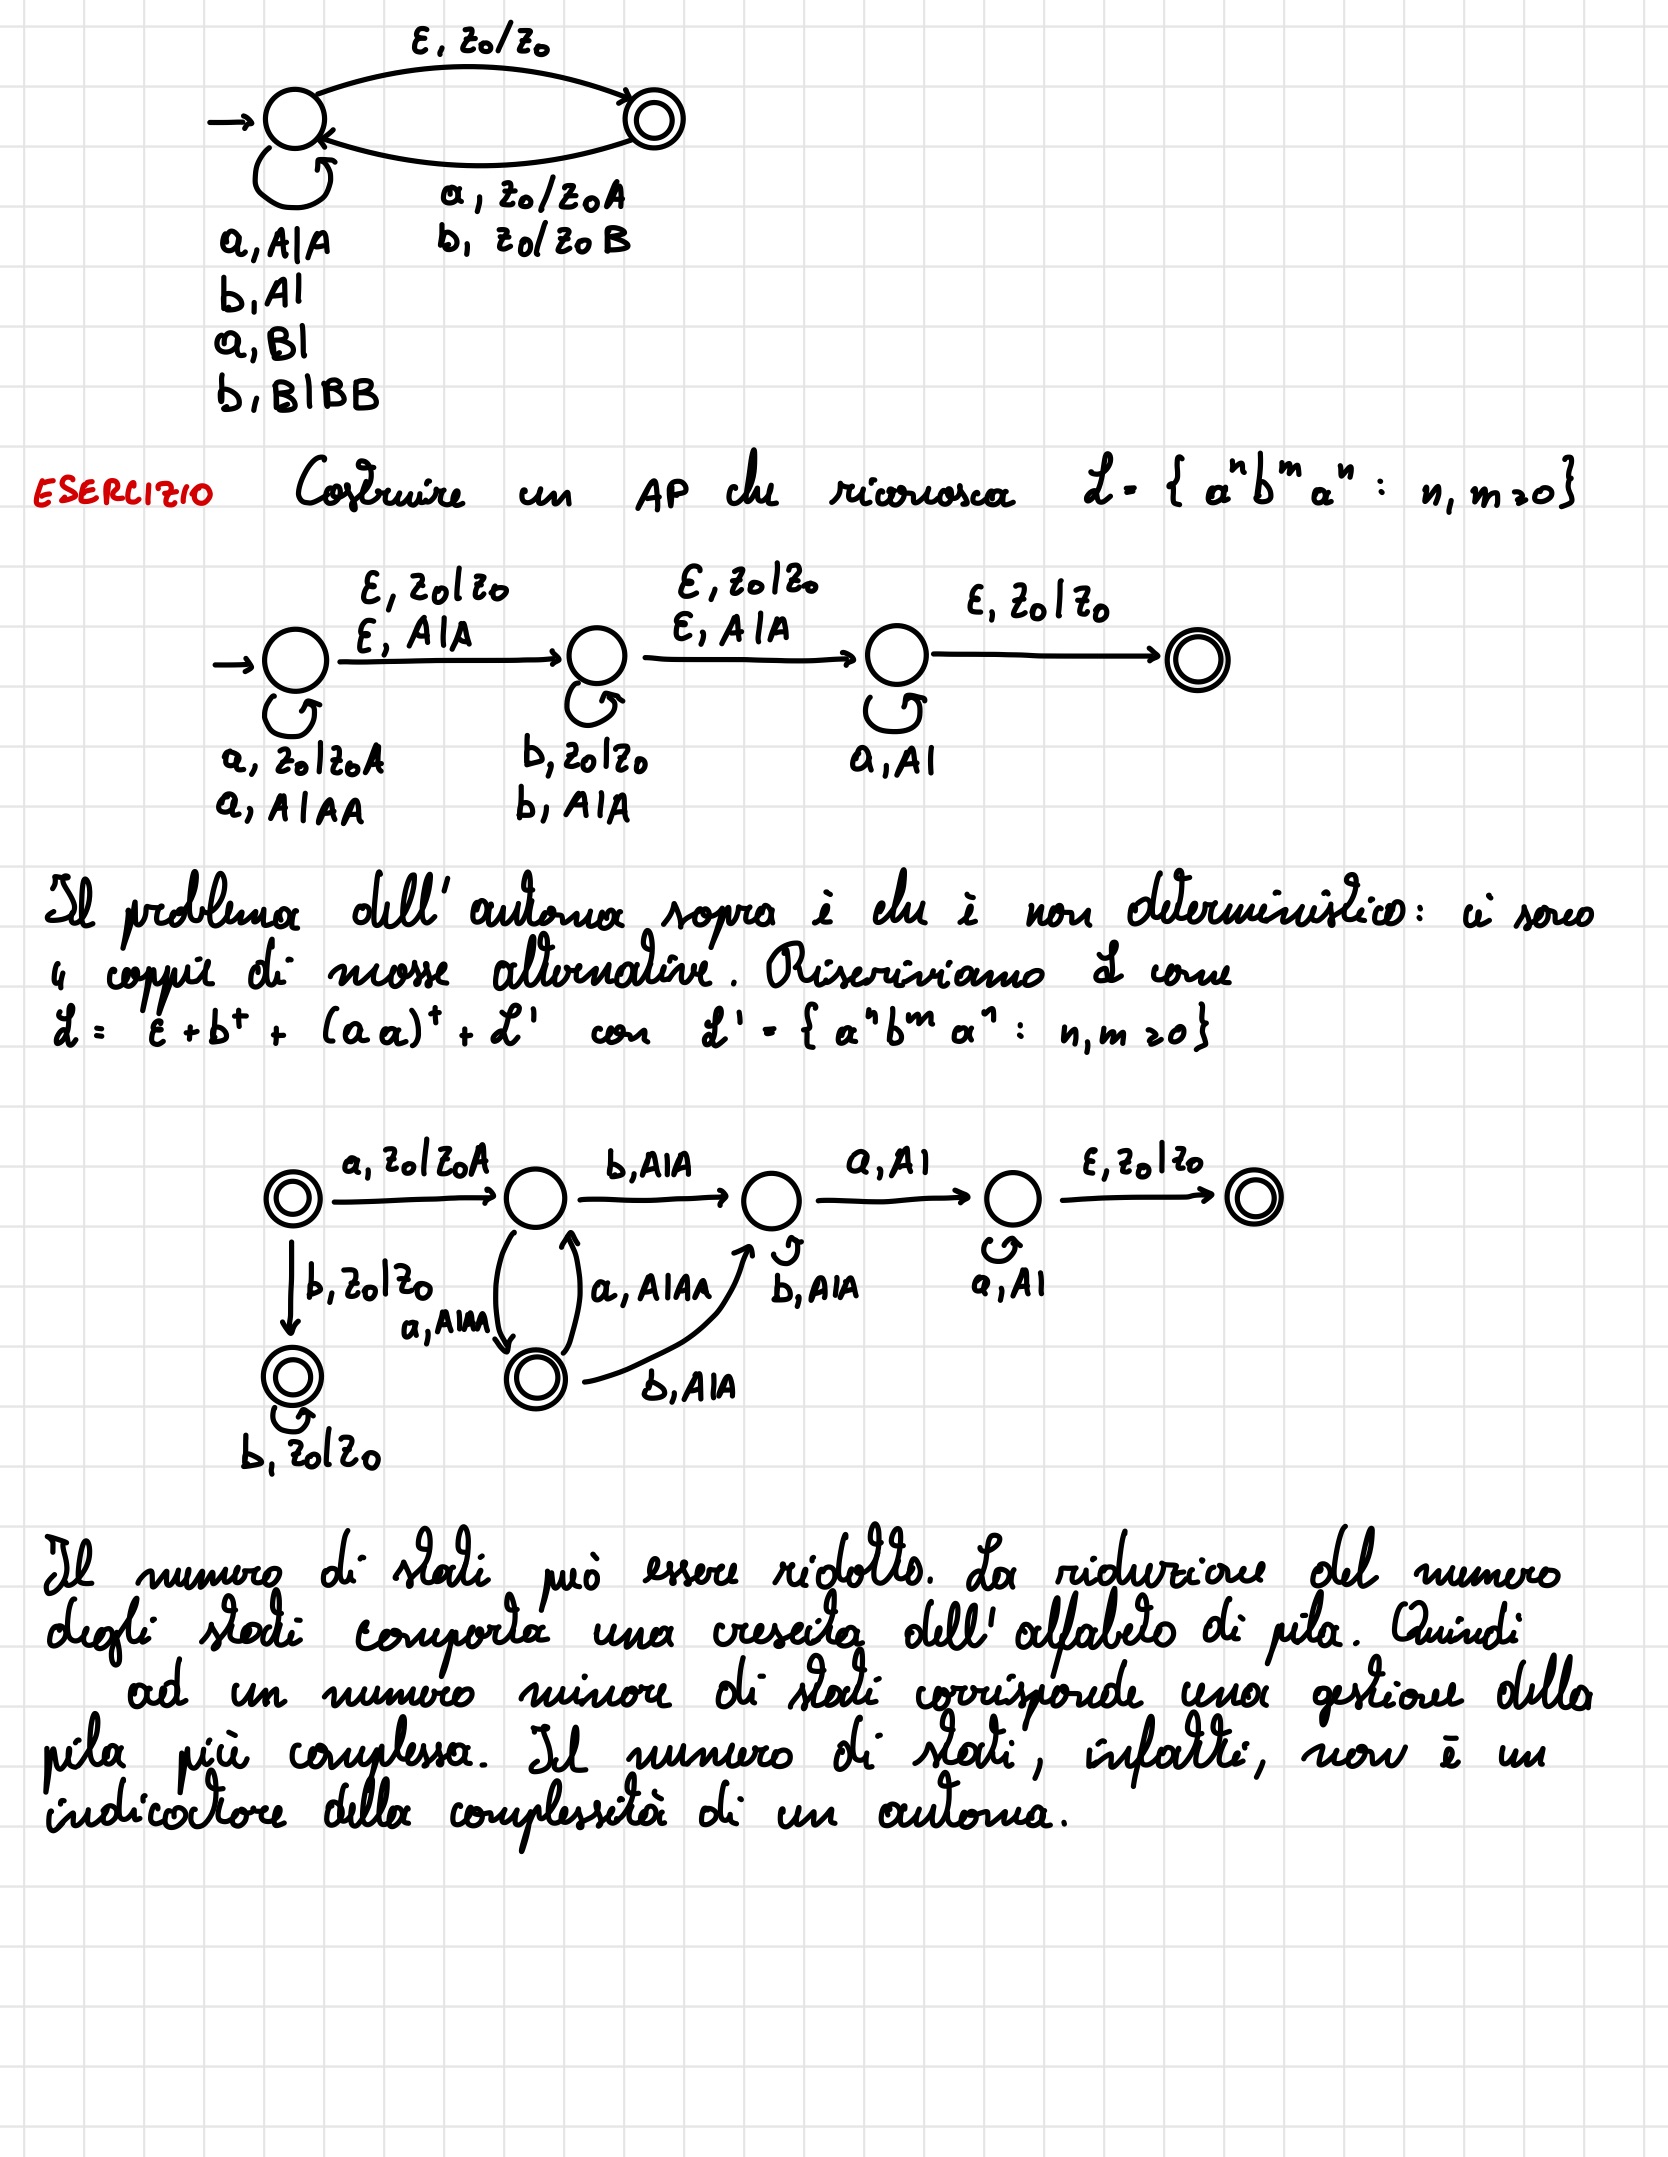 ε, z₀/z₀
a, z₀/z₀A
b, z₀/z₀B
a, A|A
b, A|
a, B|
b, B|BB
ESERCIZIO Costruire un AP che riconosca L = { aⁿbᵐaⁿ : n, m ≥ 0}
ε, z₀|z₀
ε, A|A
ε, z₀|z₀
ε, A|A
ε, z₀|z₀
a, z₀|z₀A
a, A|AA
b, z₀|z₀
b, A|A
a, A|
Il problema dell'automa sopra è che è non deterministico: ci sono
4 coppie di mosse alternative. Riscriviamo L come
L = ε + b⁺ + (aa)⁺ + L' con L' = { aⁿbᵐaⁿ : n, m ≥ 0}
a, z₀/z₀A
b, A|A
a, A|
ε, z₀|z₀
b, z₀|z₀
a, A|AA
a, A|AA
b, A|A
a, A|
b, A|A
b, z₀|z₀
Il numero di stati può essere ridotto. La riduzione del numero
degli stati comporta una crescita dell'alfabeto di pila. Quindi
ad un numero minore di stati corrisponde una gestione della
pila più complessa. Il numero di stati, infatti, non è un
indicatore della complessità di un automa.